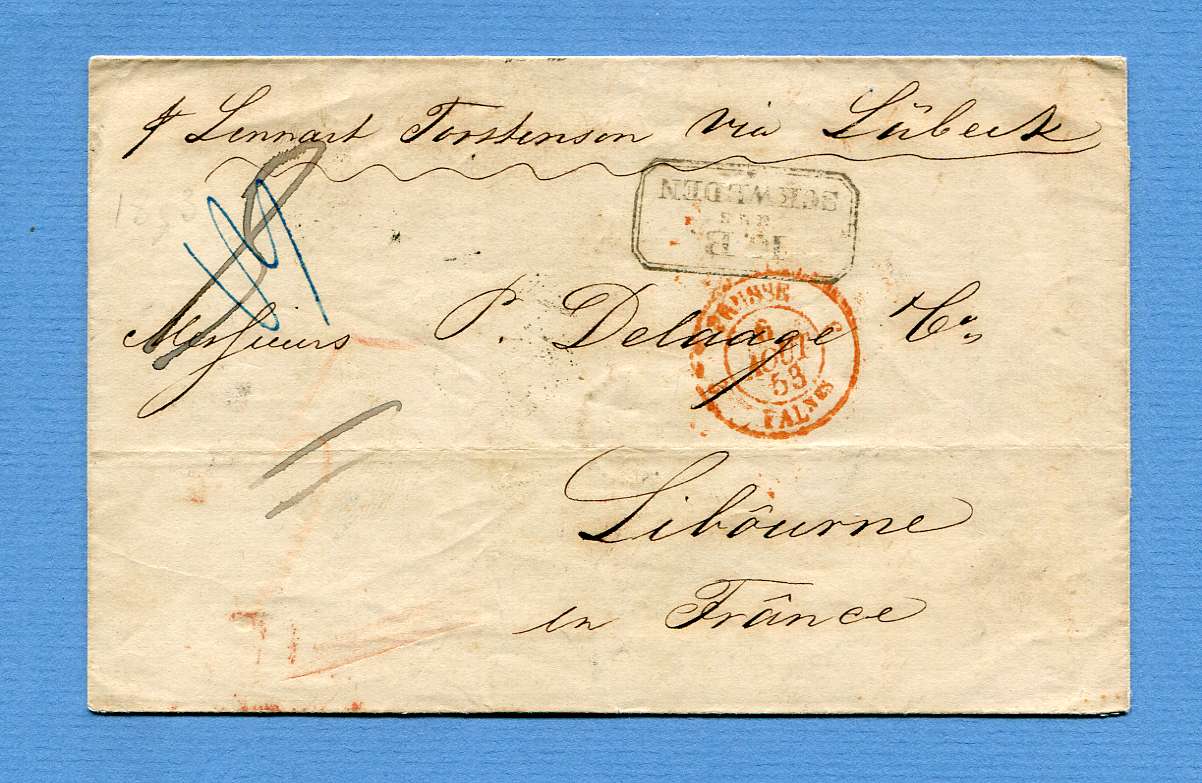 ℘ Lennart Torstenson via Lübeck
L.B
aus
SCHWEDEN
Messieurs P. Delaage & Co
PRUSSE
6
AOUT
53
VALNES
6
Libôurne
en Frânce